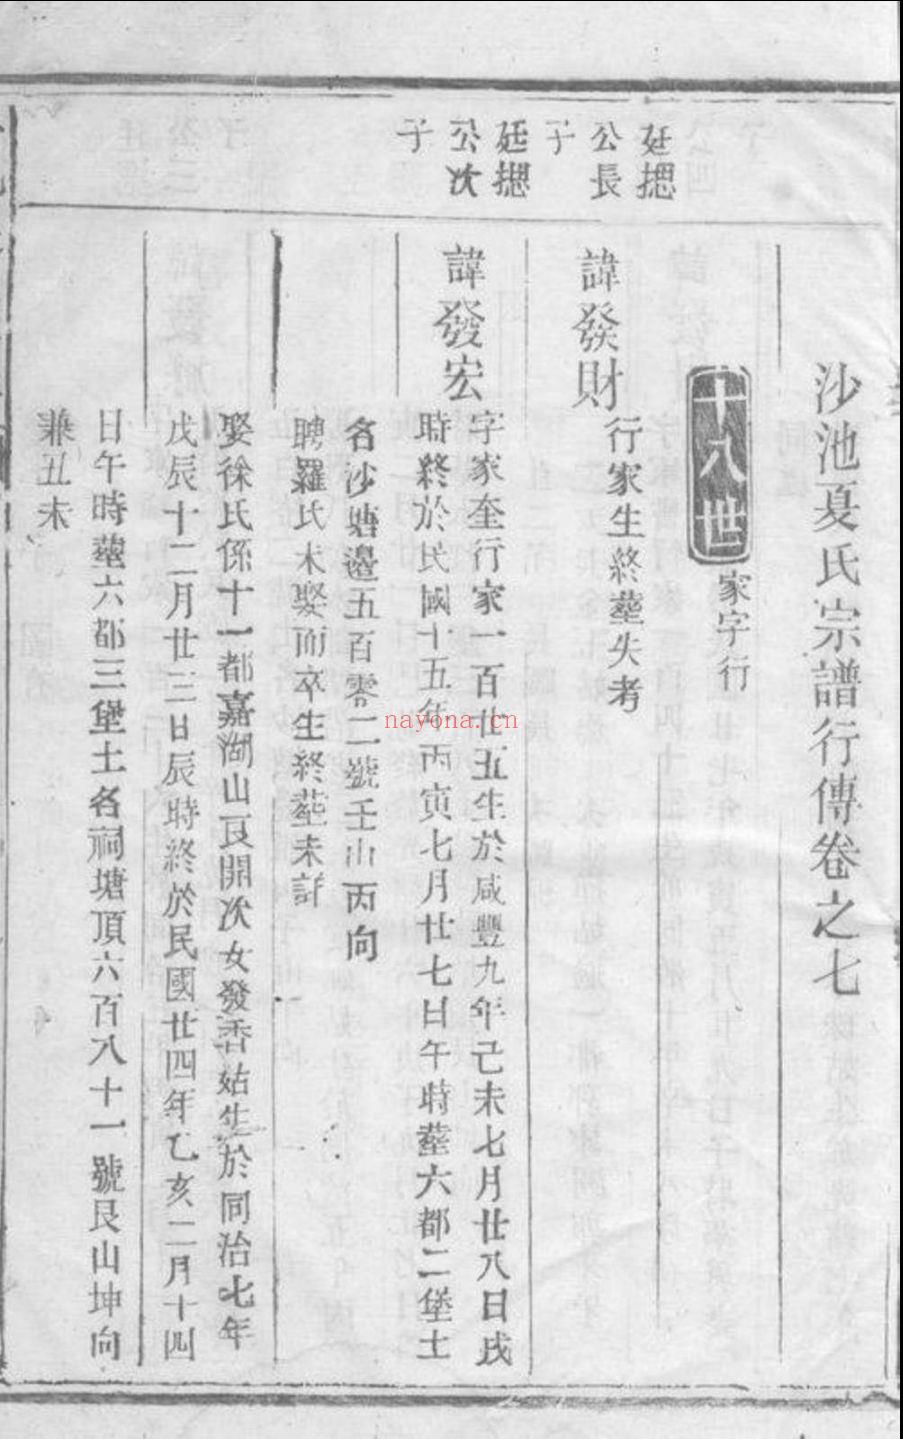 沙池夏氏宗譜行傳卷之七
十八世
家字行
廷摁
公長
子
諱發財
行家生終塟失考
廷摁
公次
子
諱發宏
字家奎行家一百廿五生於咸豐九年己未七月廿八日戌
時終於民國十五年丙寅七月廿七日午時塟六都二堡土
名沙塘邉五百零二號壬山丙向
聘羅氏未娶而卒生終塟未詳
娶徐氏係十一都嘉湖山良開次女發香姑生於同治七年
戊辰十二月廿三日辰時終於民國廿四年乙亥二月十四
日午時塟六都三堡土名祠塘頂六百八十一號艮山坤向
兼丑未
nayona.cn